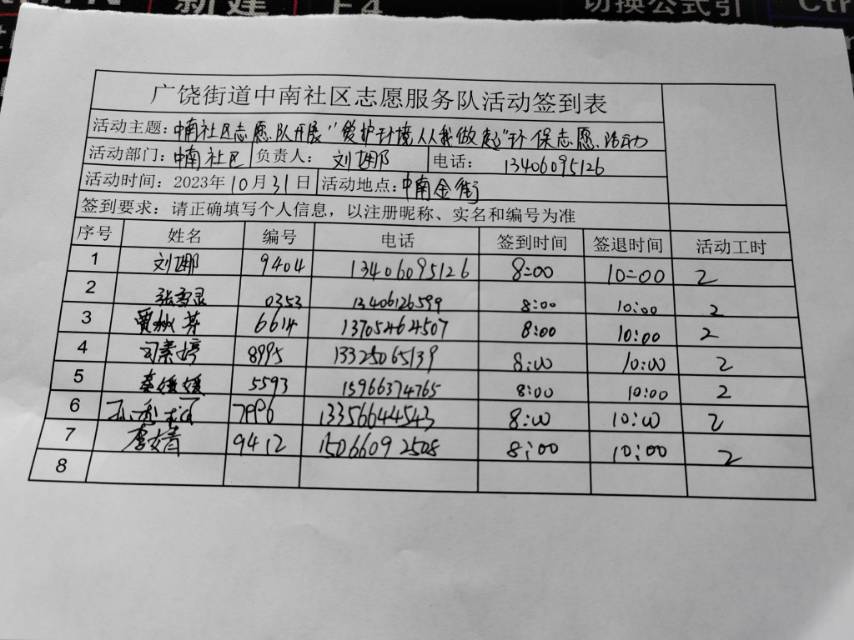 新建
F4
切换公式引
Ctr
广饶街道中南社区志愿服务队活动签到表
活动主题:中南社区志愿队开展"爱护环境从我做起"环保志愿活动
活动部门:中南社区 负责人: 刘娜 电话: 13406095126
活动时间:2023年10月31日 活动地点:中南金街
签到要求:请正确填写个人信息,以注册昵称、实名和编号为准
序号 姓名 编号 电话 签到时间 签退时间 活动工时
1 刘娜 9404 13406095126 8:00 10:00 2
2 0353 13406126599 8:00 10:00 2
3 6614 13705464507 8:00 10:00 2
4 司素婷 8995 13325065139 8:00 10:00 2
5 秦媛媛 5593 15966374765 8:00 10:00 2
6 13356644543 8:00 10:00 2
7 李婧 9412 15066092508 8:00 10:00 2
8